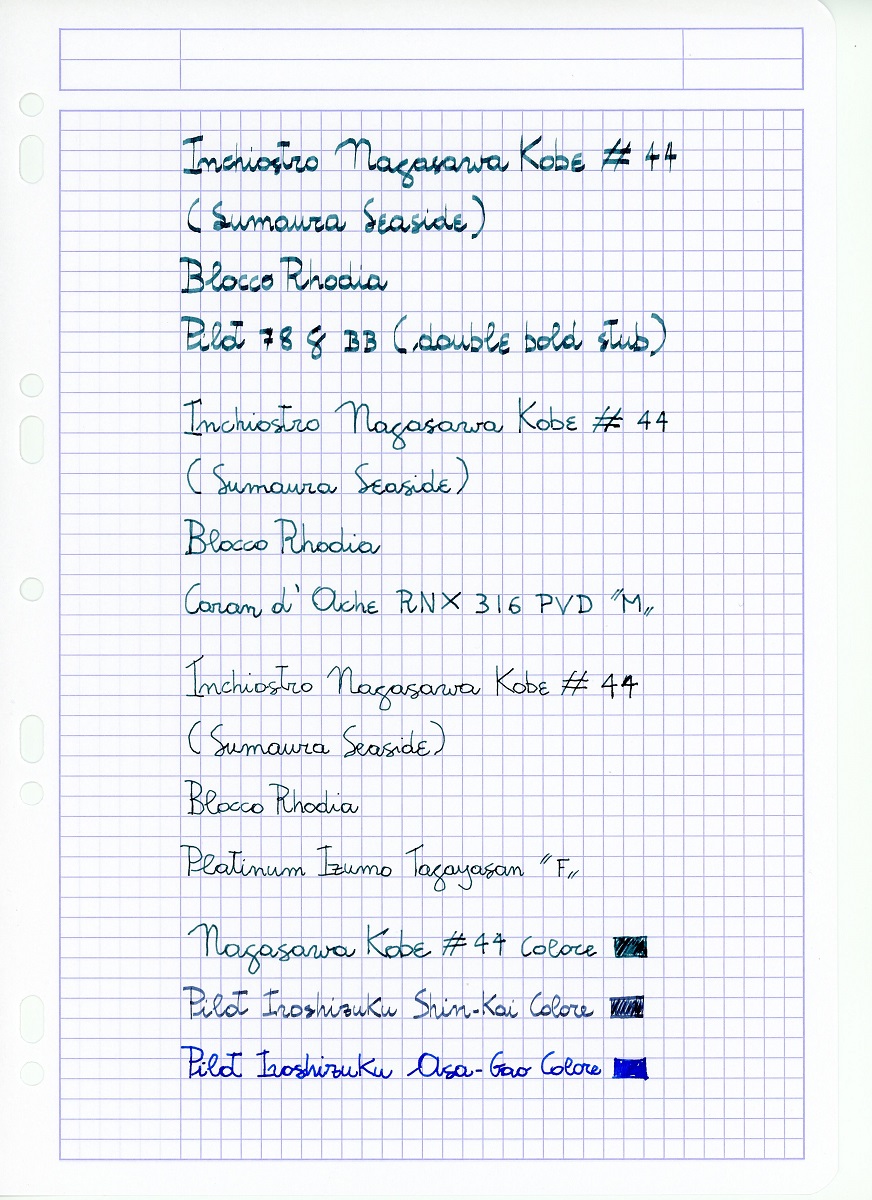 Inchiostro Nagasawa Kobe # 44
(Sumaura Seaside)
Blocco Rhodia
Pilot 78 G BB (double bold stub)
Inchiostro Nagasawa Kobe # 44
(Sumaura Seaside)
Blocco Rhodia
Caran d'Ache RNX 316 PVD "M"
Inchiostro Nagasawa Kobe # 44
(Sumaura Seaside)
Blocco Rhodia
Platinum Izumo Tagayasan "F"
Nagasawa Kobe # 44 Colore
Pilot Iroshizuku Shin-Kai Colore
Pilot Iroshizuku Asa-Gao Colore